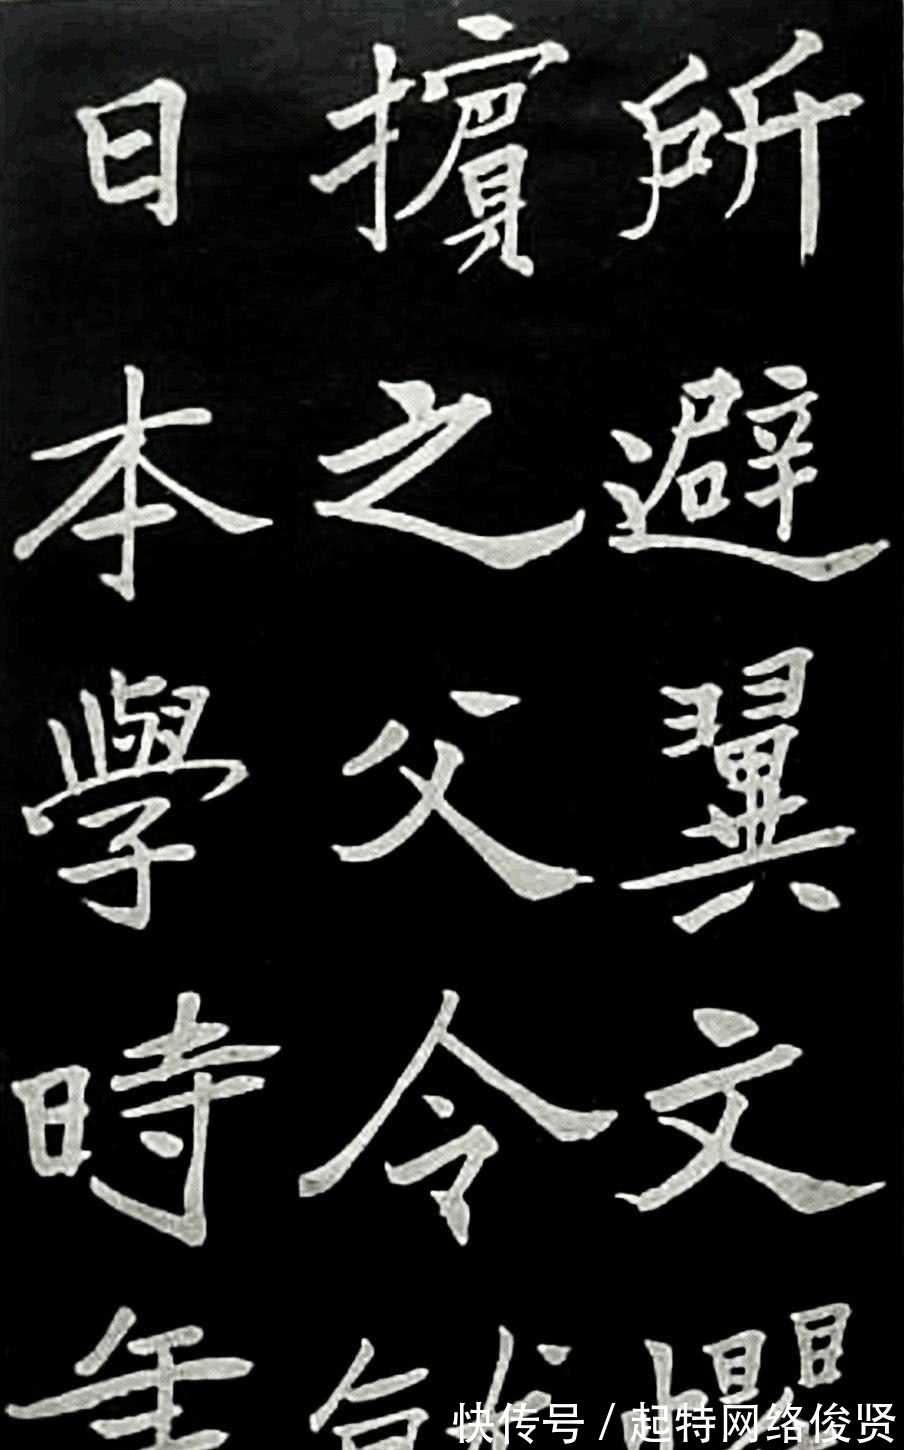 所避翼文懼
擯之父令
日本學時年
快传号 / 起特网络俊贤